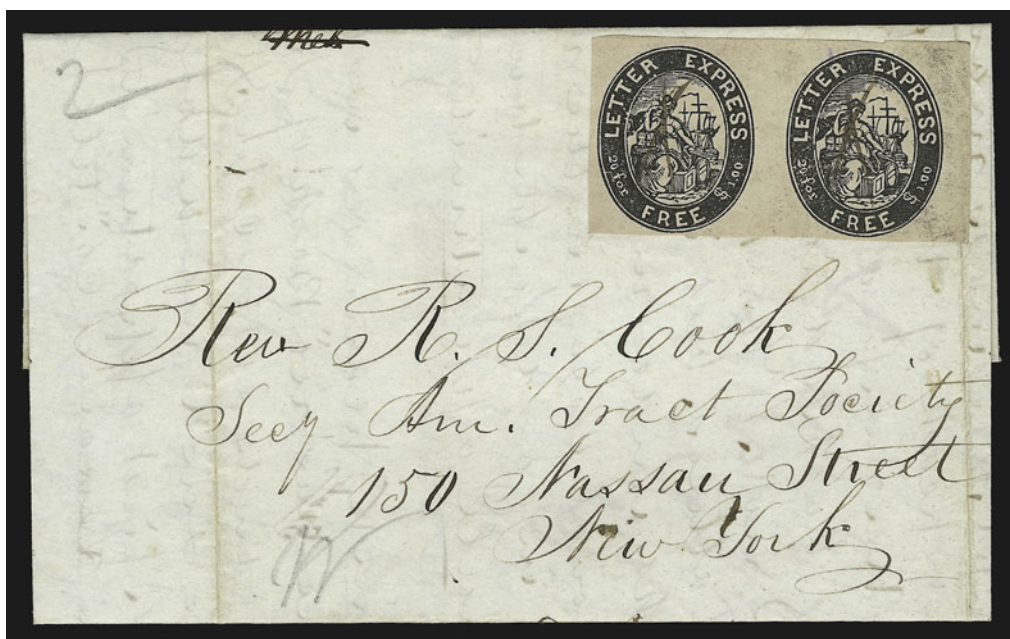 LETTER EXPRESS
20 for $1.00
FREE
LETTER EXPRESS
20 for $1.00
FREE
Rev R. S. Cook
Secy Am. Tract Society
150 Nassau Street
New York